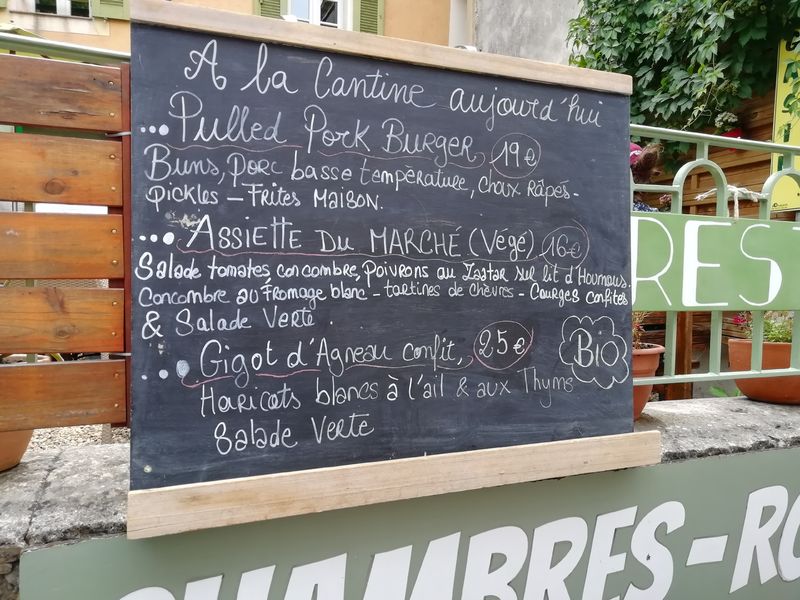 A la Cantine aujourd'hui
... Pulled Pork Burger 19€
Buns, Porc basse température, choux Râpés -
Pickles - Frites Maison.
... Assiette du Marché (Végé) 16€
Salade tomates, concombre, Poivrons au Zaatar sur lit d'Houmous.
Concombre au Fromage blanc - tartines de chèvres - Courges confites
& Salade Verte.
... Gigot d'Agneau confit, 25€
BiO
Haricots blancs à l'ail & aux Thyms
Salade Verte
REST
CHAMBRES-RO